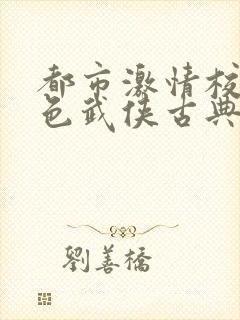 都市激情校
色武侠古典
劉善橋